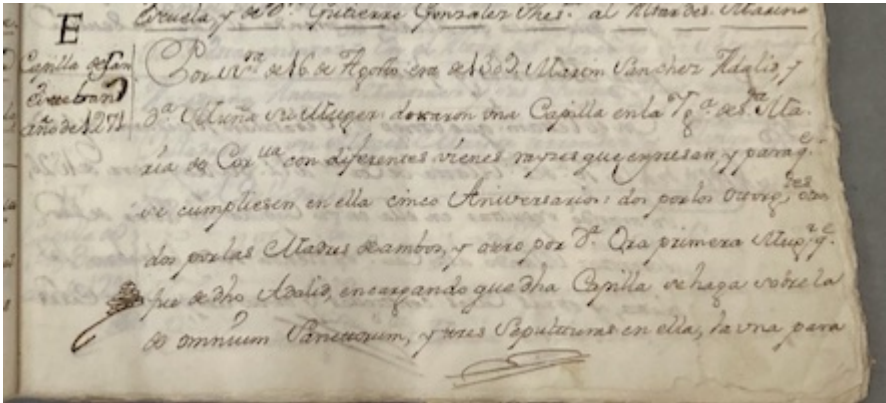 Escuela y de Dn. Gutierre Gonzalez Thes.o al Altar de S. Marina
E
Capilla de San
Estevan
año de 1271
Por scr.ra de 16 de Agosto era de 1309, Martin Sanchez Adalid, y
D.a Muña su Muger: dotaron una Capilla en la Yg.a de S.ta Ma-
ria de Cor.va con diferentes vienes rayzes que expresan, y para q.e
se cumpliesen en ella cinco Aniversarios: dos por los otorg.tes otros
dos por las Madres de ambos, y otro por D.a Ora primera Mug.r q.e
fue de dho Adalid, encargando que dha Capilla se haga sobre la
de omnium Sanctorum, y tres Sepulturas en ella, la una para